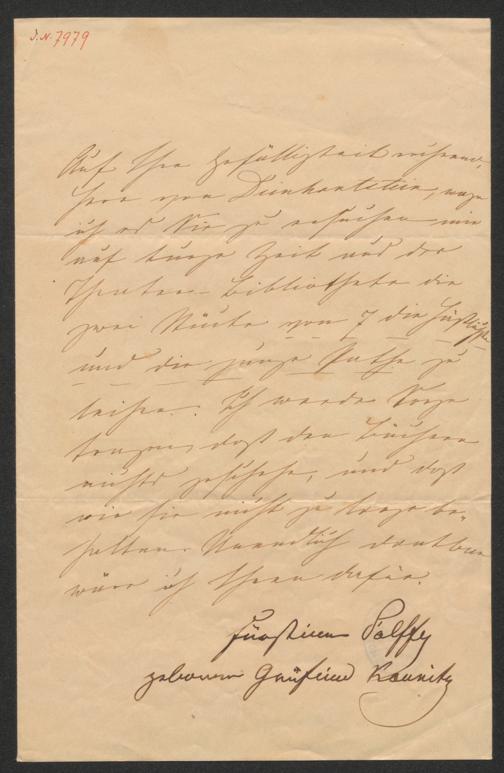 J.N. 7979
Auf Ihre Gefälligkeit rechnend,
Herr von Deinhardstein, wage
ich es Sie zu ersuchen mir
auf kurze Zeit aus der
Theater-Bibliotheke die
zwei Stücke von 7 die
und die junge Pathe zu
leihen. Ich werde Sorge
tragen, daß den Büchern
nichts geschehe, und daß
wir sie nicht zu lange be-
halten. Unendlich dankbar
wäre ich Ihnen dafür.
Fürstinn Pálffy
geborene Gräfinn Kaunitz